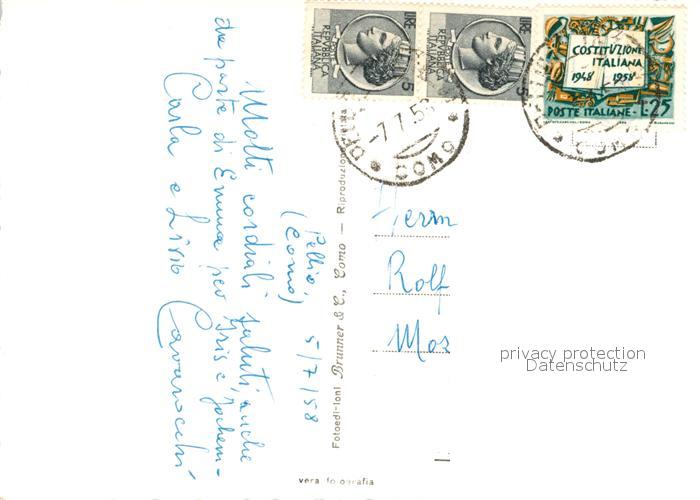 Pellio,
(Como) 5/7/58
Molti cordiali saluti, anche
da parte di Emma per Iris e Jochem-
Carla e Livio Cavarocchi
Herrn
Rolf
Mos
LIRE 5
REPUBBLICA
ITALIANA
LIRE 5
REPUBBLICA
ITALIANA
COSTITUZIONE
ITALIANA
1948 1958
POSTE ITALIANE - L.25
-7.7.5
COMO
Fotoedizioni Brunner & C., Como — Riproduzione vietata
vera fotografia
privacy protection
Datenschutz